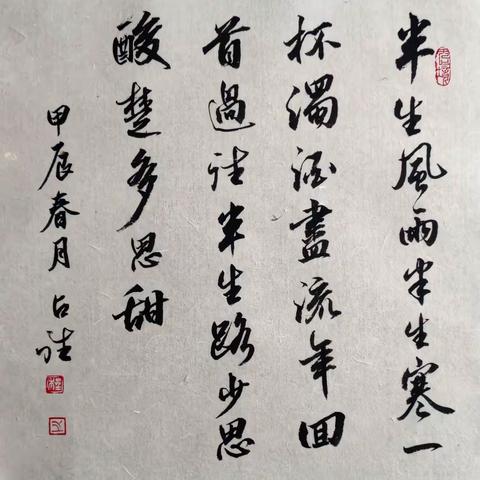 半生風雨半生寒一
杯濁酒盡流年回
首過往半生路少思
酸楚多思甜
甲辰春月占柱